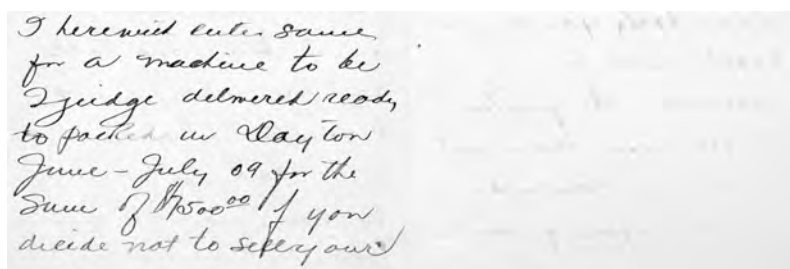 I herewith enter same
for a machine to be
I judge delivered ready
to packed in Dayton
June - July 09 for the
Sum of $7500⁰⁰ If you
decide not to sell yours